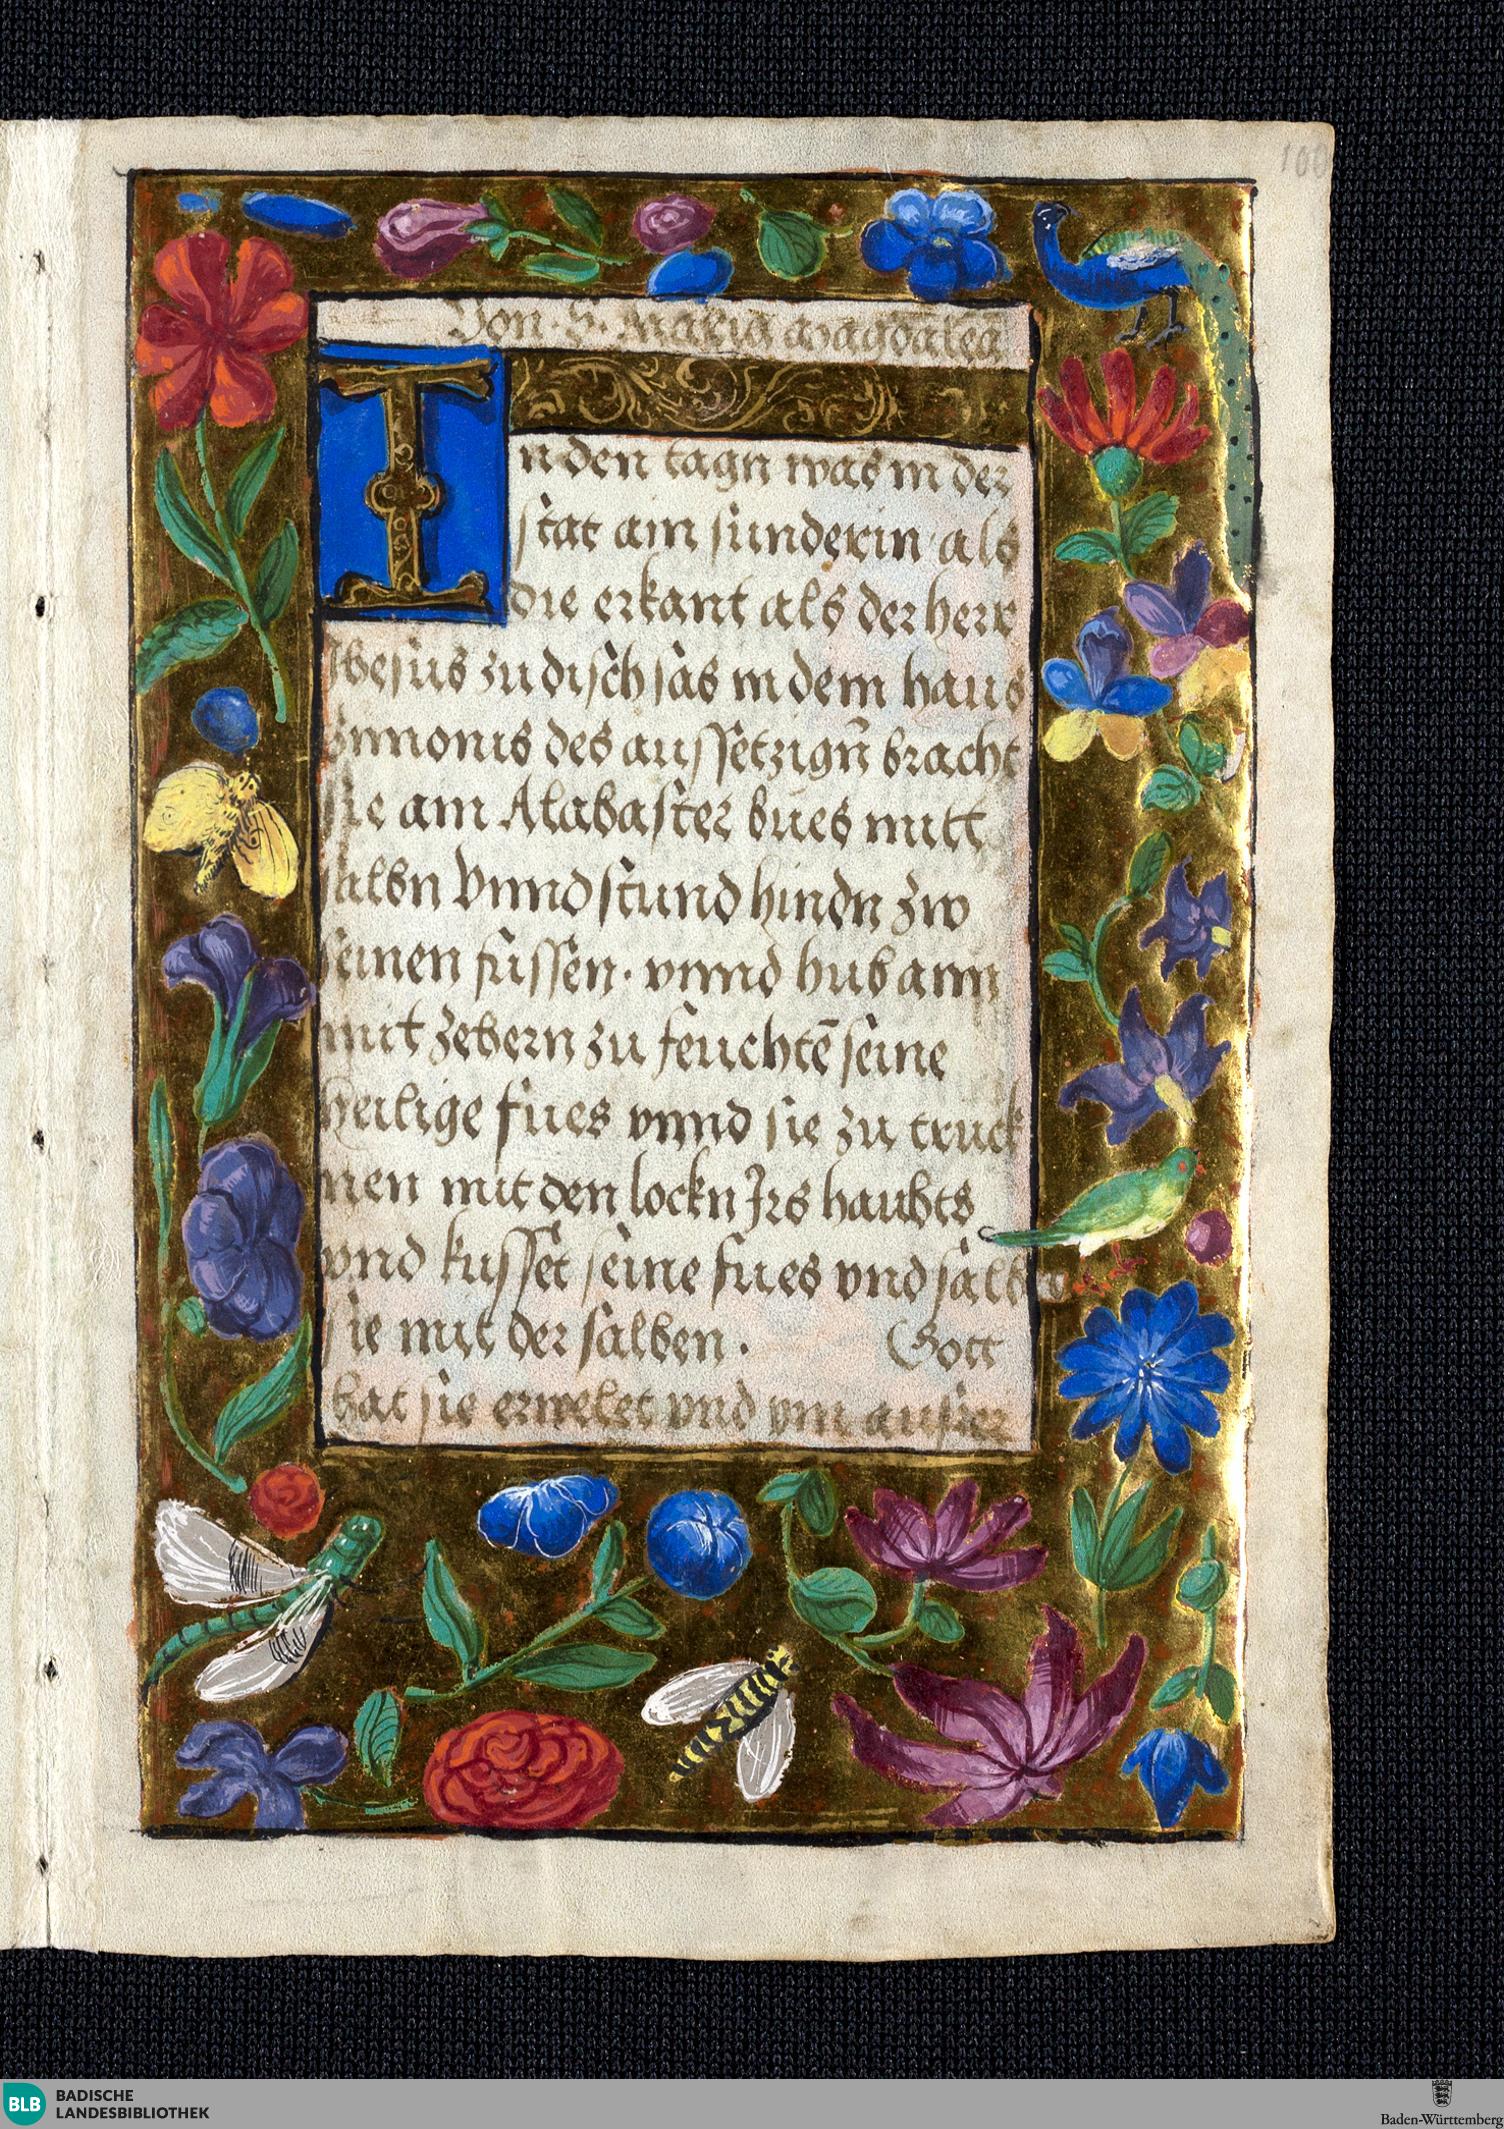 100
Von · S · Maria Magdalea
In den tagn was in der
stat ain sunderin als
die erkant als der herr
Jhesus zu disch sas in dem haus
Simonis des aussetzign̄ bracht
sie ain Alabaster bues mitt
salbn Vnnd stund hindn zw
seinen fussen · vnnd hub ann
mit zehern zu feuchtē seine
heilige fues vnnd sie zu truck
nen mit den lockn Jrs haubts
vnd kusset seine fues vnd salbet
sie mit der salben . Gott
hat sie erwelet vnd vm ausser
BLB BADISCHE
LANDESBIBLIOTHEK
Baden-Württemberg